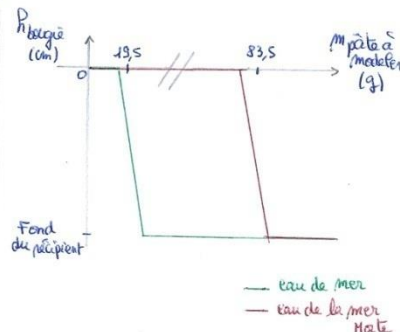 h bougie
(cm)
0
19,5
83,5
m pâte à
modeler
(g)
Fond
du récipient
eau de mer
eau de la mer
Morte